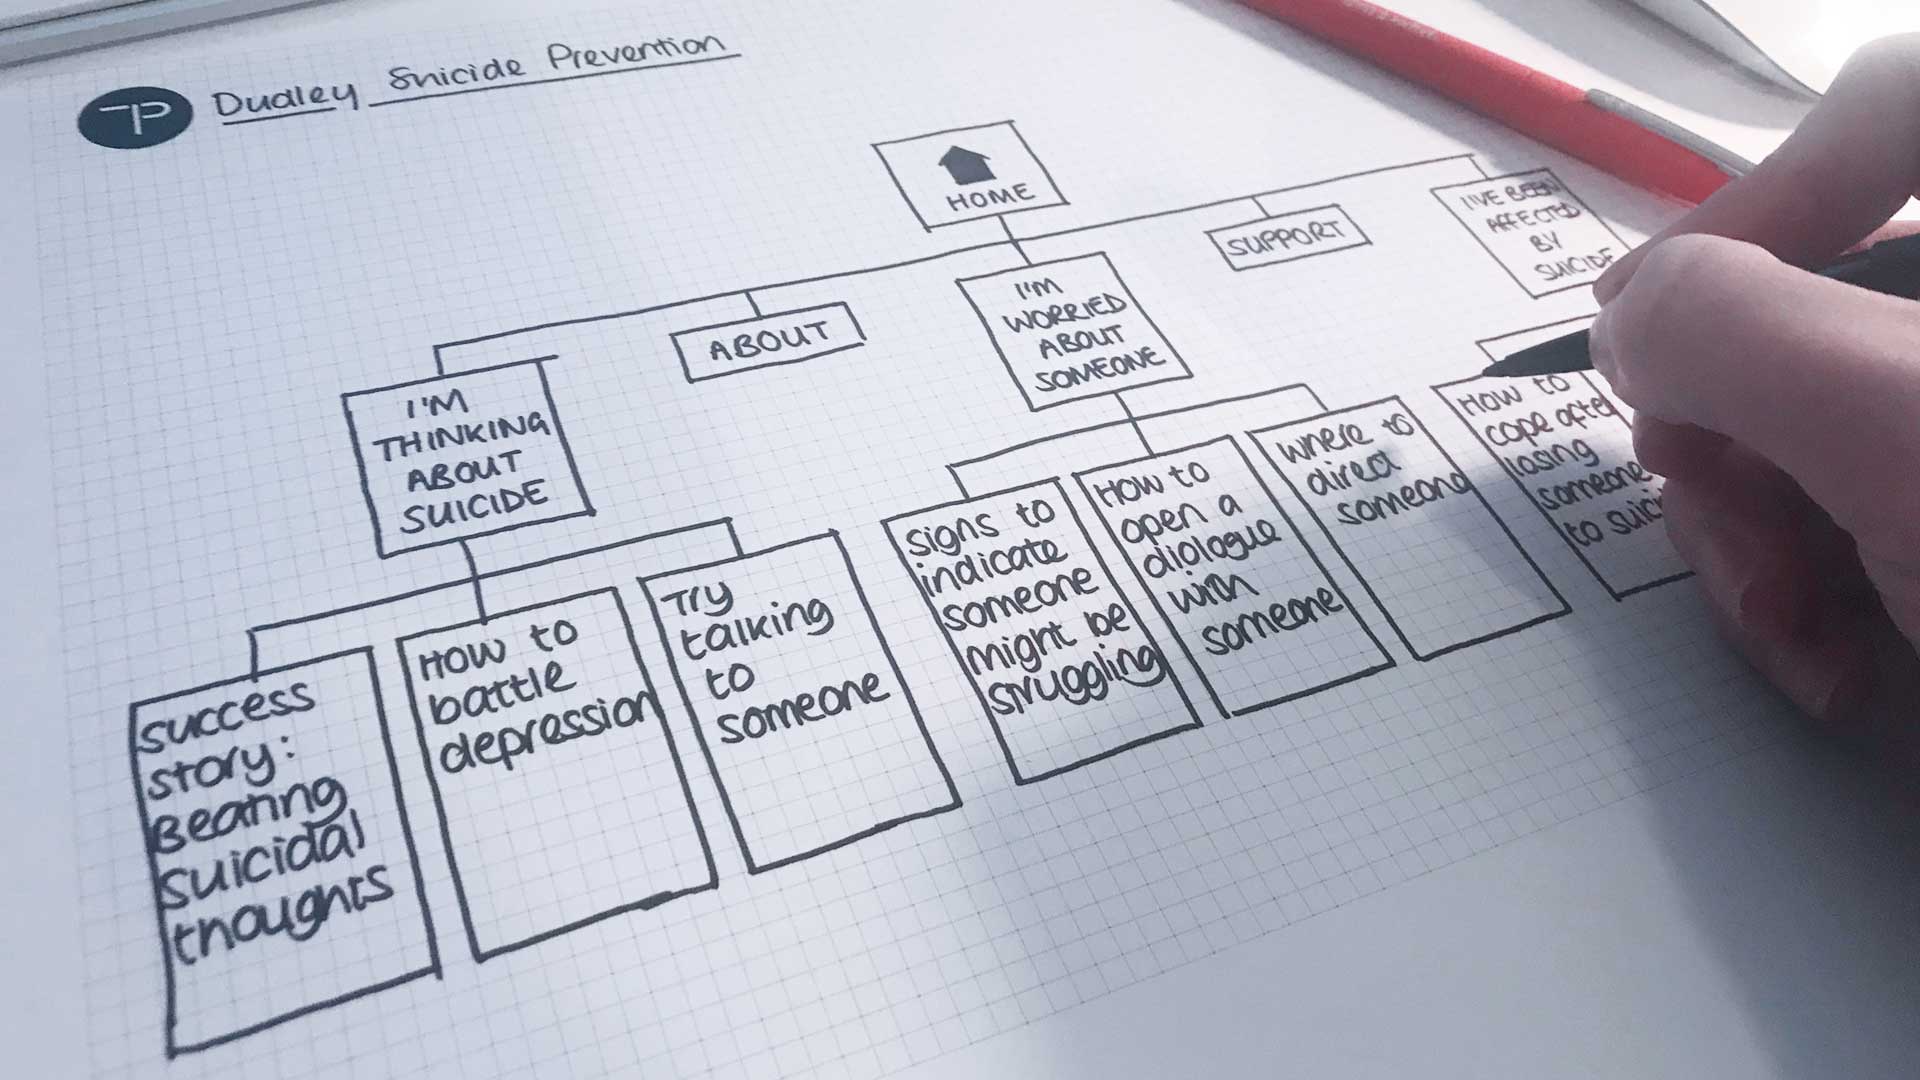 TP
Dudley Suicide Prevention
HOME
I'M
THINKING
ABOUT
SUICIDE
ABOUT
I'M
WORRIED
ABOUT
SOMEONE
SUPPORT
I'VE BEEN
AFFECTED
BY
SUICIDE
success
story:
Beating
suicidal
thoughts
HOW to
battle
depression
Try
talking
to
someone
signs to
indicate
someone
might be
struggling
HOW to
open a
diologue
with
someone
where to
direct
someone
HOW to
cope after
losing
someone
to